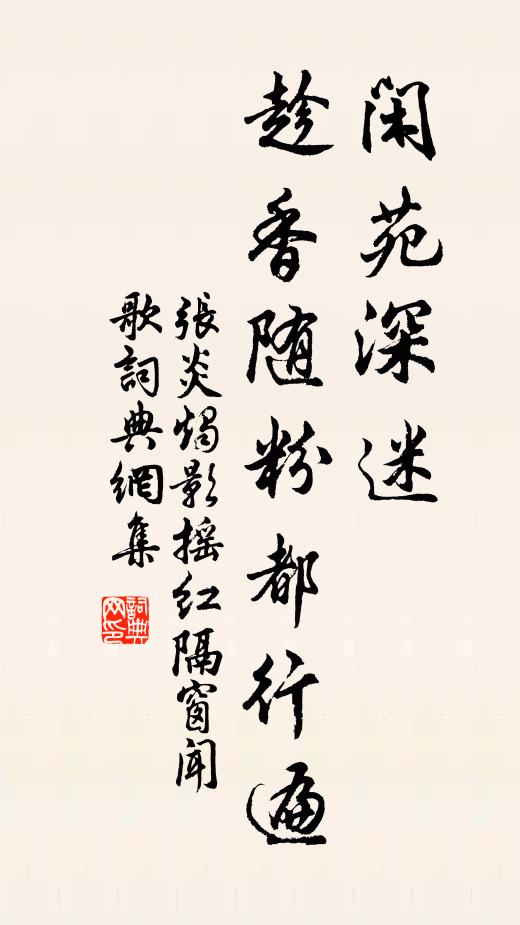 閑苑深迷
趁香随粉都行遍
張炎燭影摇紅隔窗聞
歌詞典網集
詞典網印